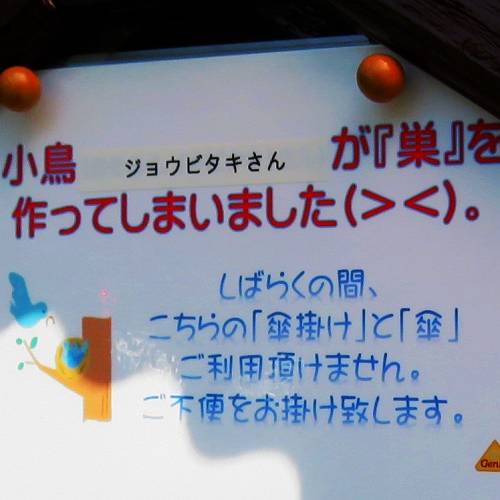 小鳥 ジョウビタキさん が『巣』を
作ってしまいました(＞＜)。
しばらくの間、
こちらの「傘掛け」と「傘」
ご利用頂けません。
ご不便をお掛け致します。